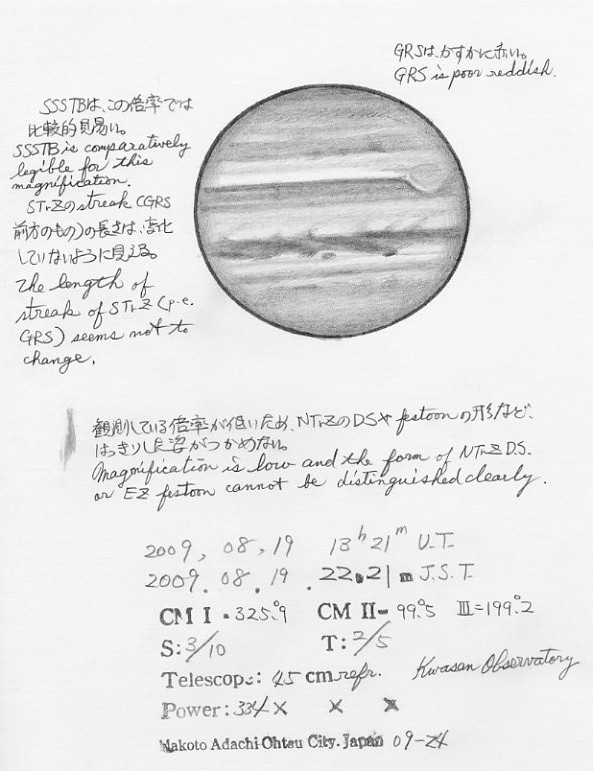 GRSは、かすかに赤い。
GRS is poor reddish.
SSSTBは、この倍率では
比較的見易い。
SSSTB is comparatively
legible for this
magnification.
STrZのstreak (GRS
前方のもの)の長さは、変化
していないように見える。
The length of
streak of STrZ (p.e.
GRS) seems not to
change.
観測している倍率が低いため、NTrZのDSやfestoonの形など、
はっきりした姿がつかめない。
Magnification is low and the form of NTrZ DS.
or EZ festoon cannot be distinguished clearly.
2009, 08, 19 13h 21m U.T.
2009. 08. 19. 22.21 m J.S.T.
CM I - 325.°9 CM II - 99.°5 III=199.°2
S: 3/10 T: 2/5
Telescope: 45 cm refr. Kwasan Observatory
Power: 334 × × ×
Makoto Adachi Ohtsu City. Japan 09-24